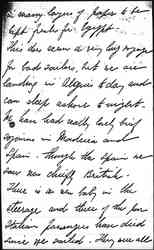 a many layers of paper to be
left
This has been a very long voyage
for bad sailors, but we are
landing in Algiers today and
can sleep ashore tonight.
We have had really lovely brief
in Madeira and
Spain. Though the Spain we
saw was chiefly British.
There is a new baby in the
steerage and three of the poor
Italian passengers have died
since we sailed. They are all